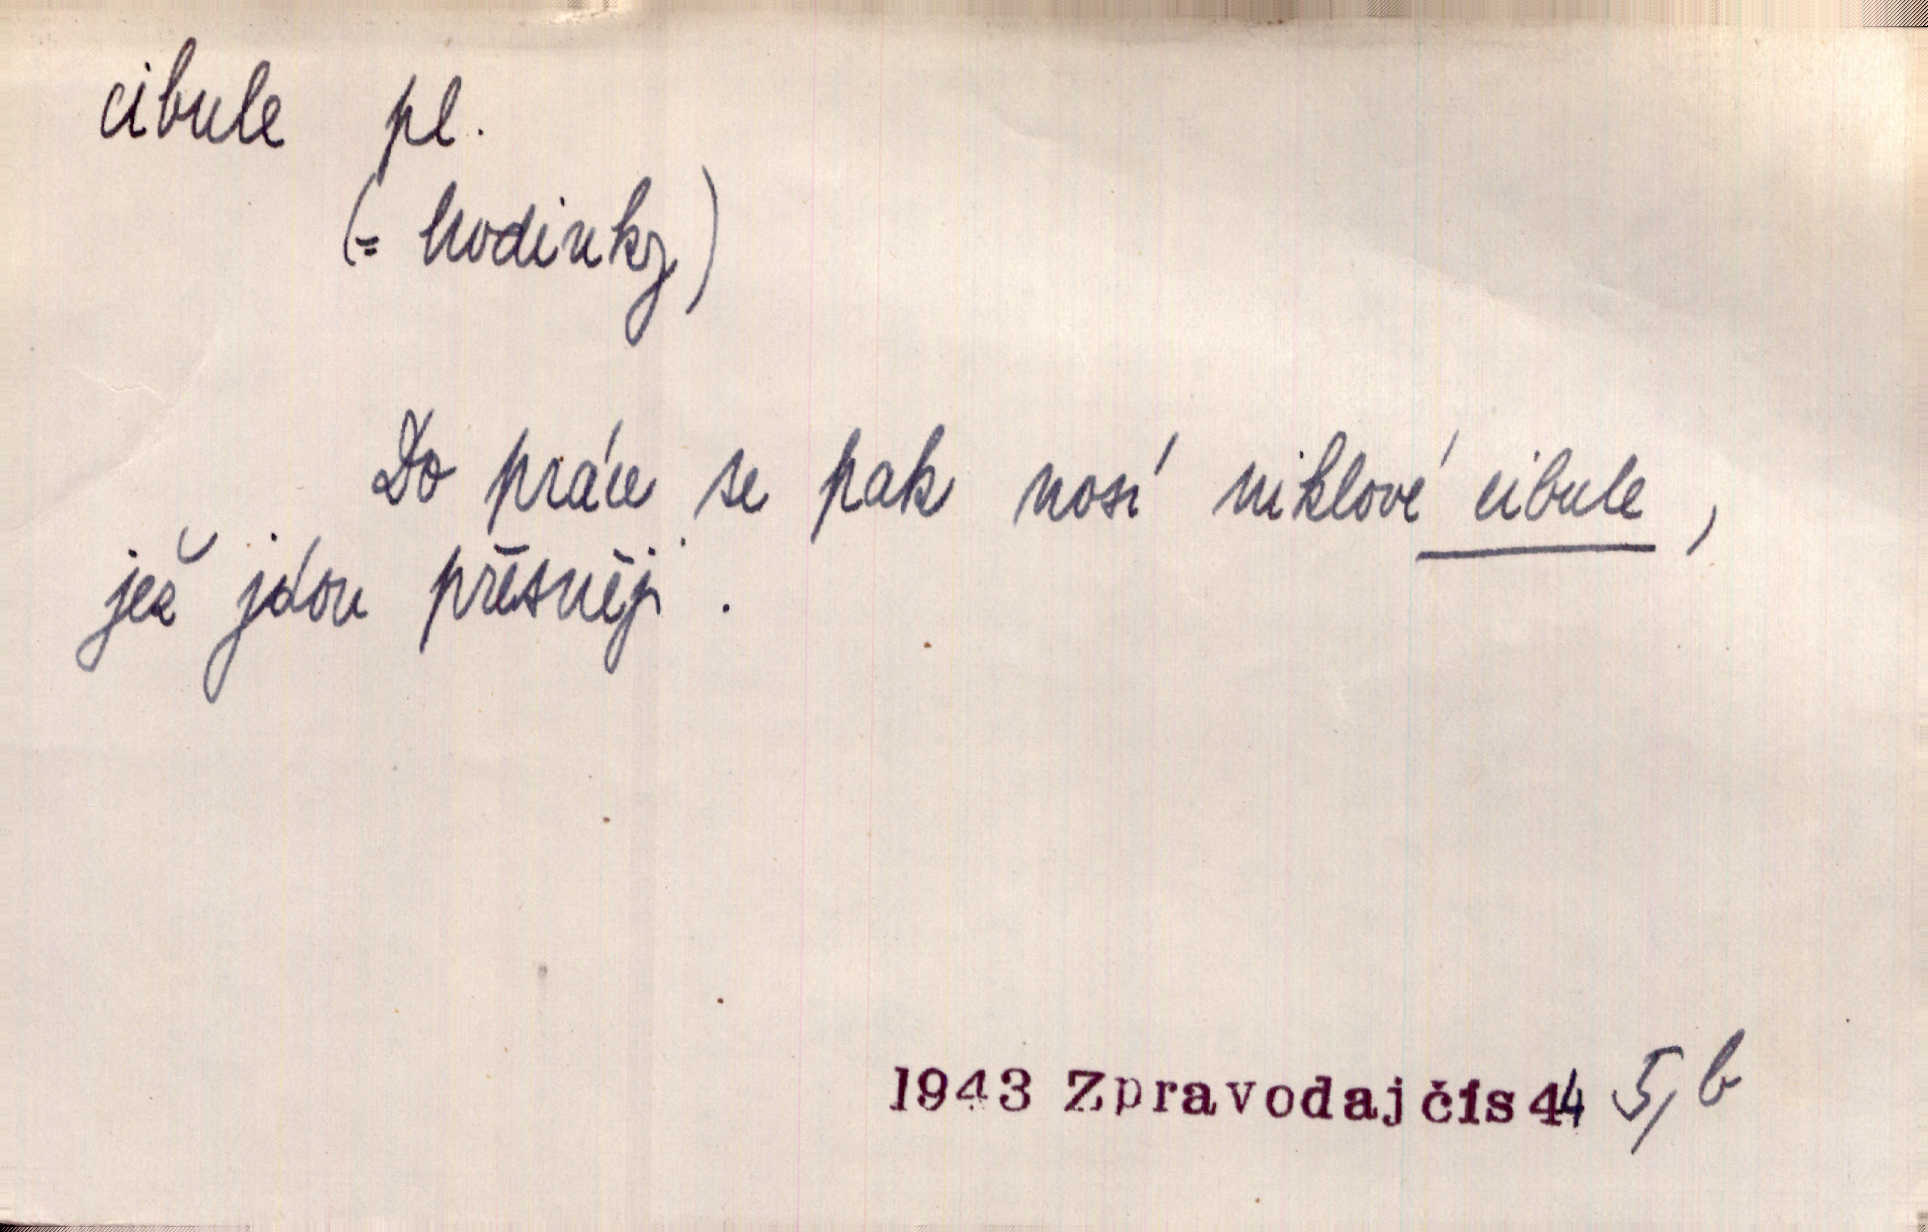 cibule pl.
(= hodinky)
Do práce se pak nosí niklové cibule,
jež jdou přesněji.
1943 Zpravodaj čís 44 5, b